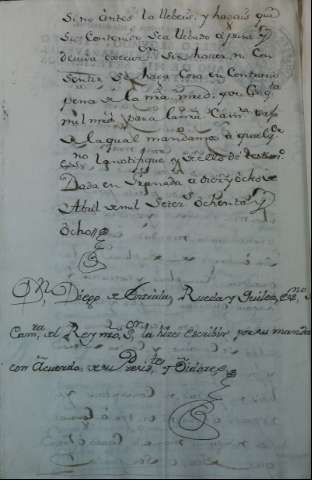 Si no antes la llebeis, y hagais que
Su Contenido Sea llebado a pura, y
devida execucion Sin hacer, ni Con
sentir se haga Cosa en Contrario
pena de la nra mrd. y de
mil mrs para la nra Camra
de la qual mandamos a qualqr
no la notifique y de ello de
Dada en Granada a diez y ocho de
Abril de mil Setecs Ochenta y
Ocho
Dn Diego de Rueda y Esno de
Camra del Rey nro Sr la hice escribir por su mandado
con Acuerdo de su Preste y Oidores